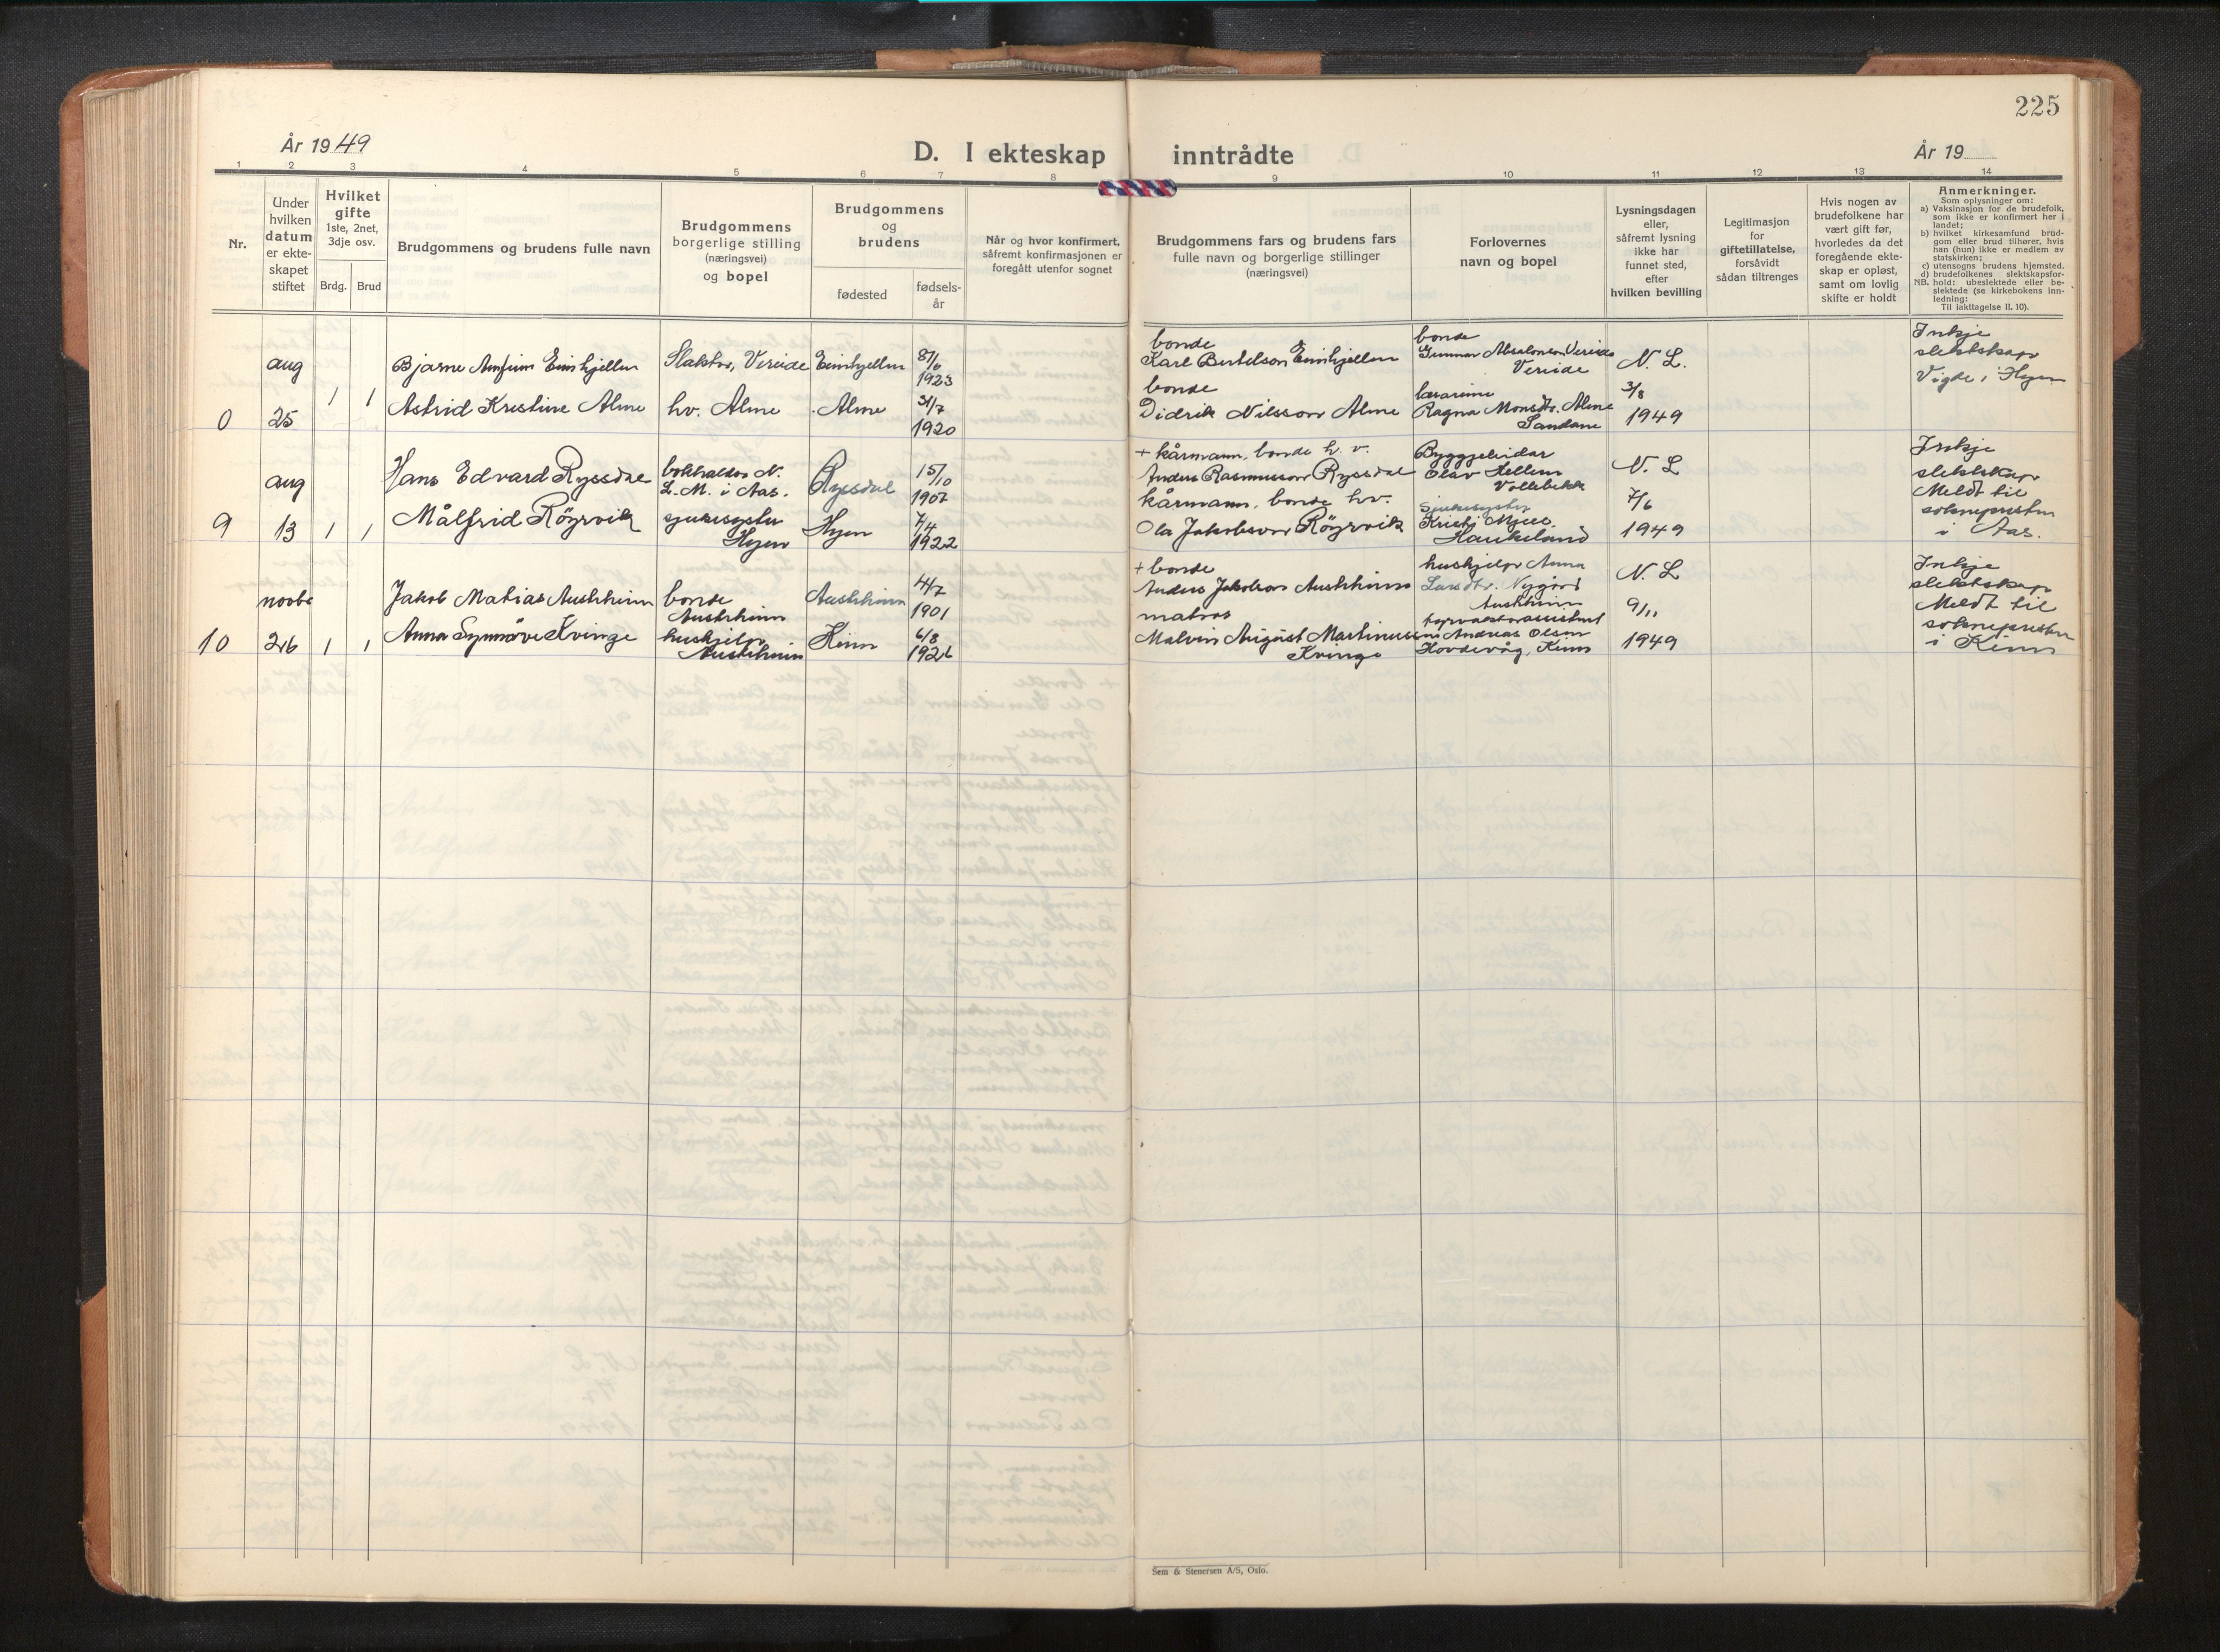 225
År 1949
D. I ekteskap inntrådte
År 19
1 2 3 4 5 6 7 8 9 10 11 12 13 14
Nr.
Under
hvilken
datum
er ekte-
skapet
stiftet
Hvilket
gifte
1ste, 2net,
3dje osv.
Brdg. Brud
Brudgommens og brudens fulle navn
Brudgommens
borgerlige stilling
(næringsvei)
og bopel
Brudgommens
og
brudens
fødested
fødsels-
år
Når og hvor konfirmert,
såfremt konfirmasjonen er
foregått utenfor sognet
Brudgommens fars og brudens fars
fulle navn og borgerlige stillinger
(næringsvei)
Forlovernes
navn og bopel
Lysningsdagen
eller,
såfremt lysning
ikke har
funnet sted,
efter
hvilken bevilling
Legitimasjon
for
giftetillatelse,
forsåvidt
sådan tiltrenges
Hvis nogen av
brudefolkene har
vært gift før,
hvorledes da det
foregående ekte-
skap er opløst,
samt om lovlig
skifte er holdt
Anmerkninger.
Som oplysninger om:
a) Vaksinasjon for de brudefolk,
som ikke er konfirmert her i
landet;
b) hvilket kirkesamfund brud-
gom eller brud tilhører, hvis
han (hun) ikke er medlem av
statskirken;
c) utensogns brudens hjemsted.
d) brudefolkenes slektskapsfor-
NB. hold: ubeslektede eller be-
slektede (se kirkebokens inn-
ledning:
Til iakttagelse II. 10).
0
aug
25
1 1
Bjarne Emhjellen
Astrid Kristine Alme
Slaktar, Vereide
hv. Alme
Emhjellen
Alme
8/6
1923
31/7
1920
bonde
Karl Bertelson Emhjellen
bonde
Didrik Nilsson Alme
bonde
Gunnar Absalonson Vereide
Vereide
lærarinne
Ragna Monsdtr. Alme
Sandane
N. L.
3/8
1949
Inkje
slektskap
Vigde i Hyen
9
aug
13
1 1
Hans Edvard Ryssdal
Målfrid Röyrvik
bokhaldar N.
L. M. i Aas.
sjukesyster
Hyen
Ryssdal
Hyen
15/10
1907
7/4
1922
+ kårmann, bonde h. v.
Anders Rasmusson Ryssdal
kårmann, bonde h.v.
Ola Jakobson Röyrvik
Byggjeleidar
Olav Hellum
Vollebekk
sjukesyster
Kristi
Haukeland
N. L
7/6
1949
Inkje
slektskap
Meldt til
soknepresten
i Aas.
10
novbr
26
1 1
Jakob Matias Austrheim
Anna Synnöve Kvinge
bonde
Austrheim
hushjelp
Austrheim
Austrheim
Kinn
4/7
1901
6/8
1926
+ bonde
Anders Jakobson Austrheim
matros
Malvin August Martinussen
Kvinge
hushjelp Anna
Larsdtr. Nygjerd
Austrheim
Andreas Olsen
Hovdevåg, Kinn
N. L
9/11
1949
Inkje
slektskap
Meldt til
soknepresten
i Kinn
Sem & Stenersen A/S, Oslo.